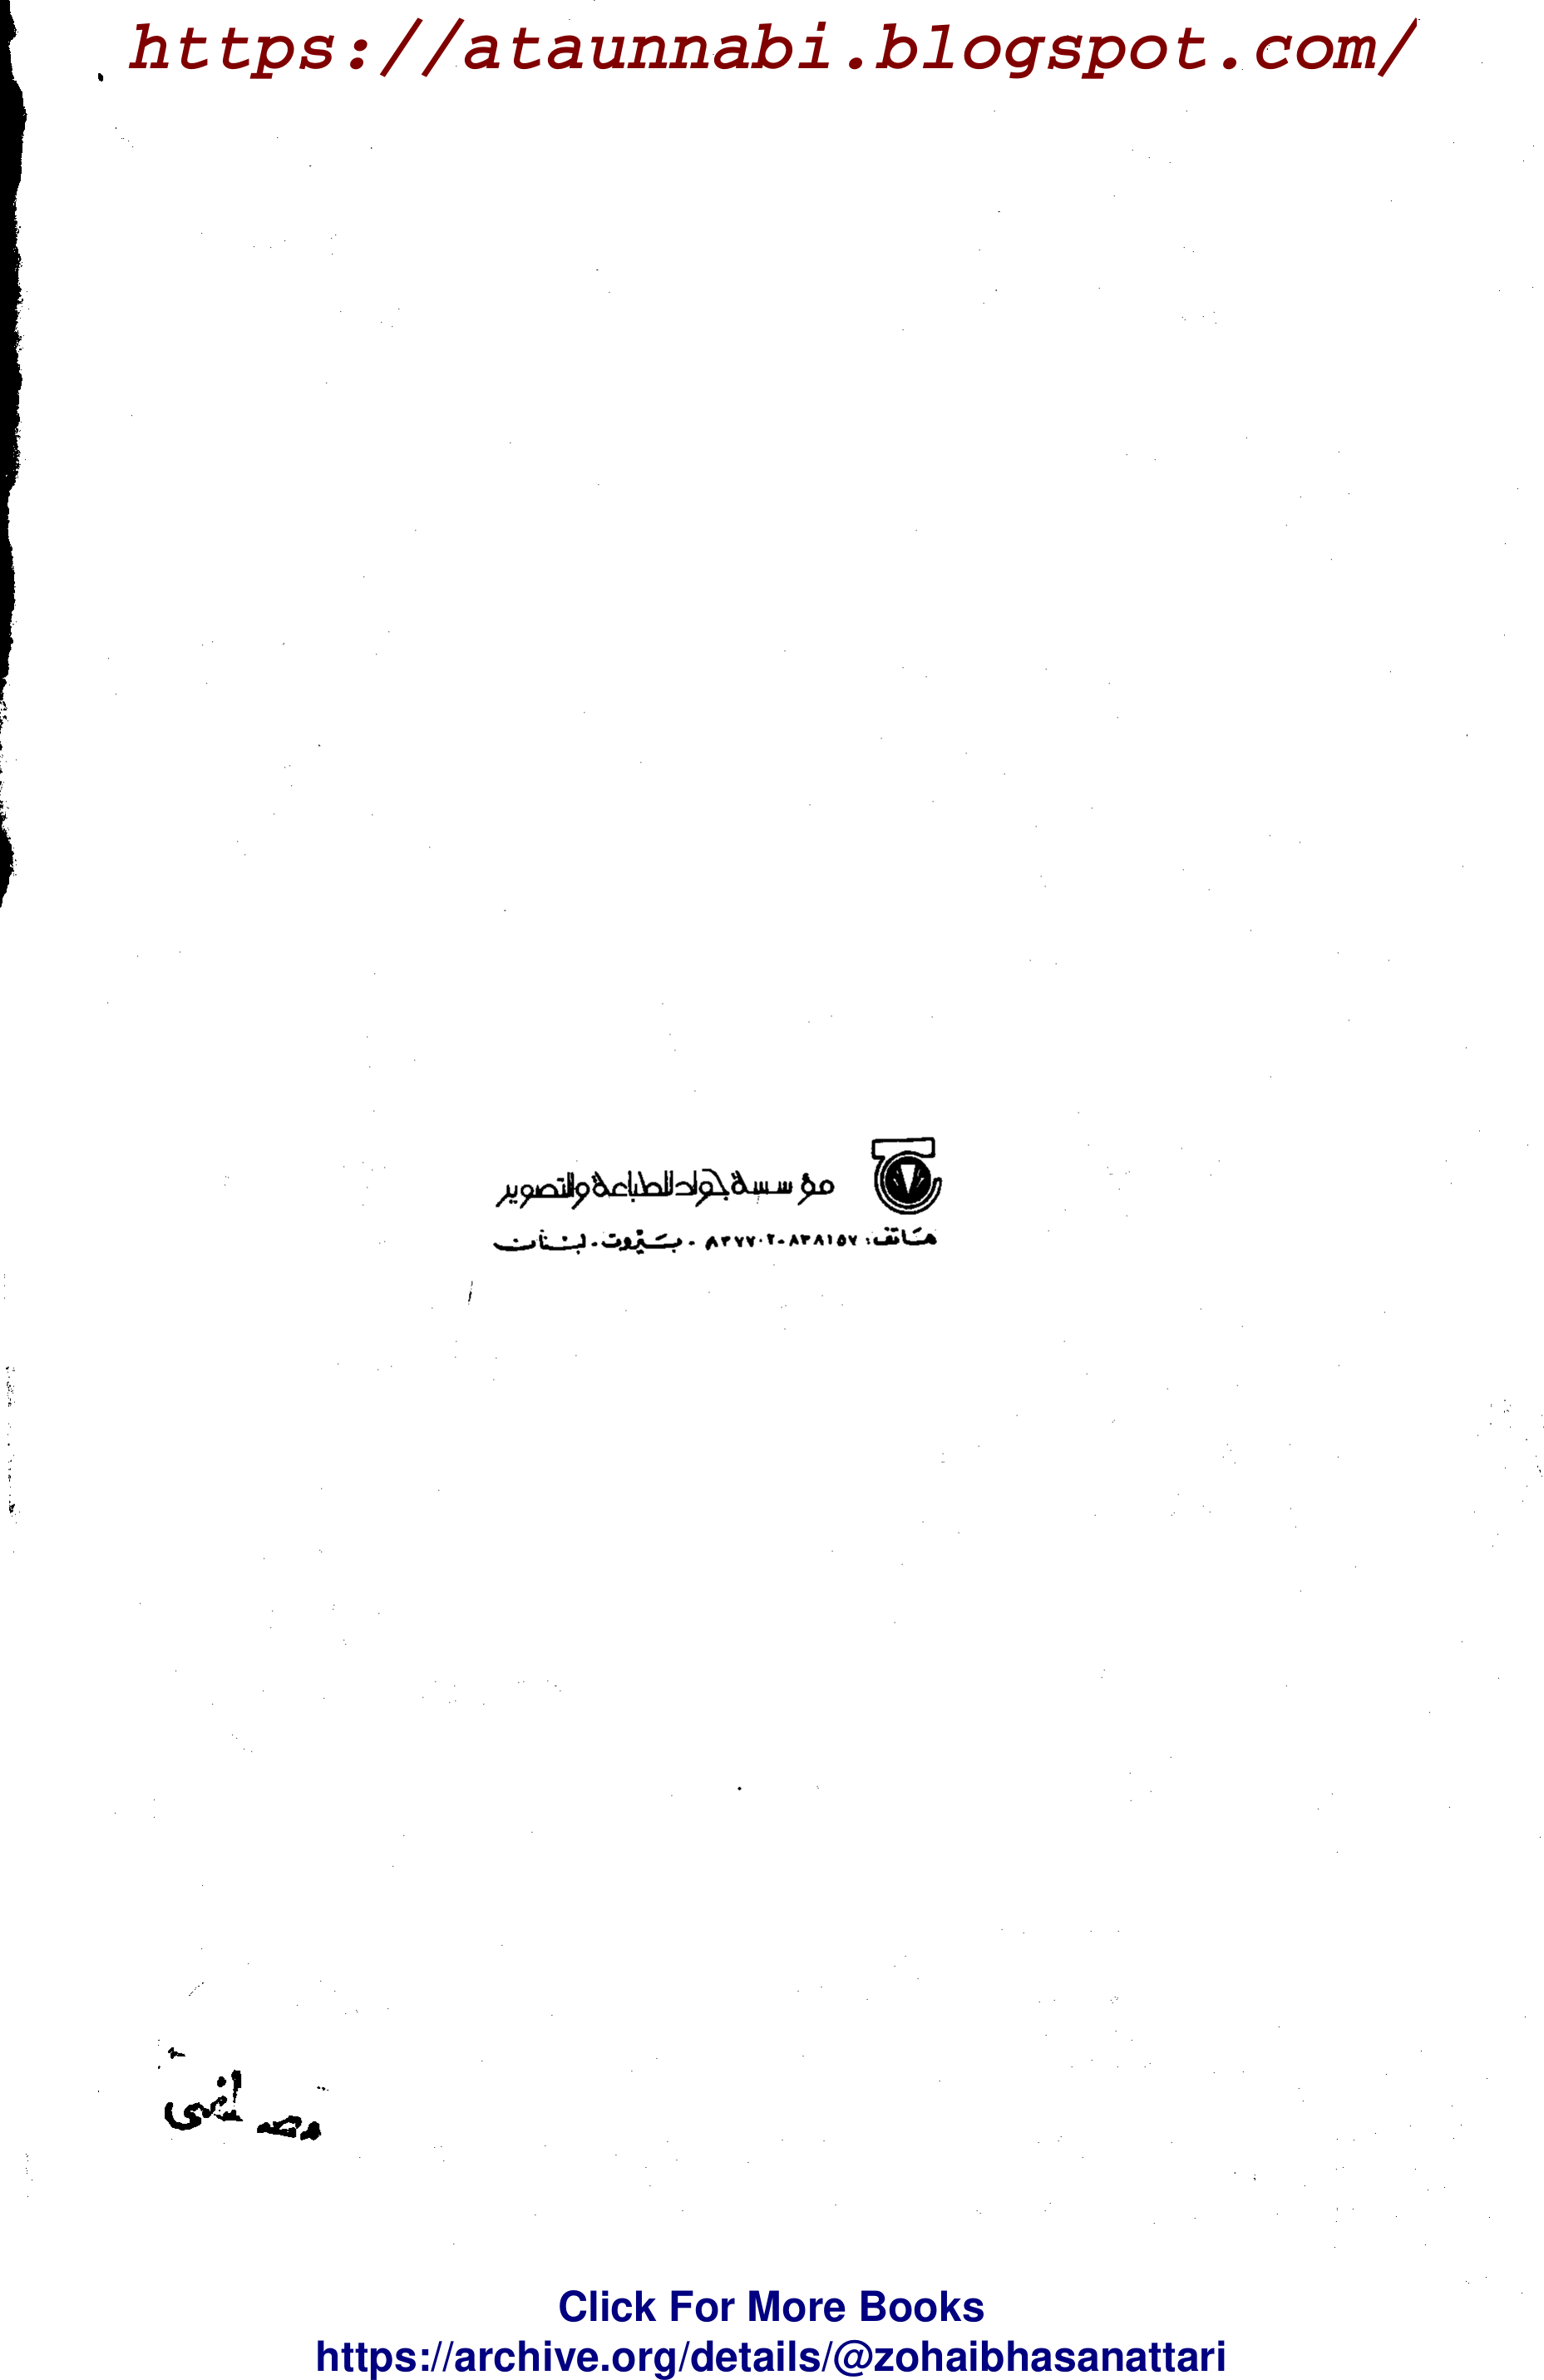 https://ataunnabi.blogspot.com/
مؤسسة جواد للطباعة والتصوير
هاتف: ٨٣٨١٥٧ - ٨٣٧٧٠٢ - بيروت - لبنان
مصطفى
Click For More Books
https://archive.org/details/@zohaibhasanattari